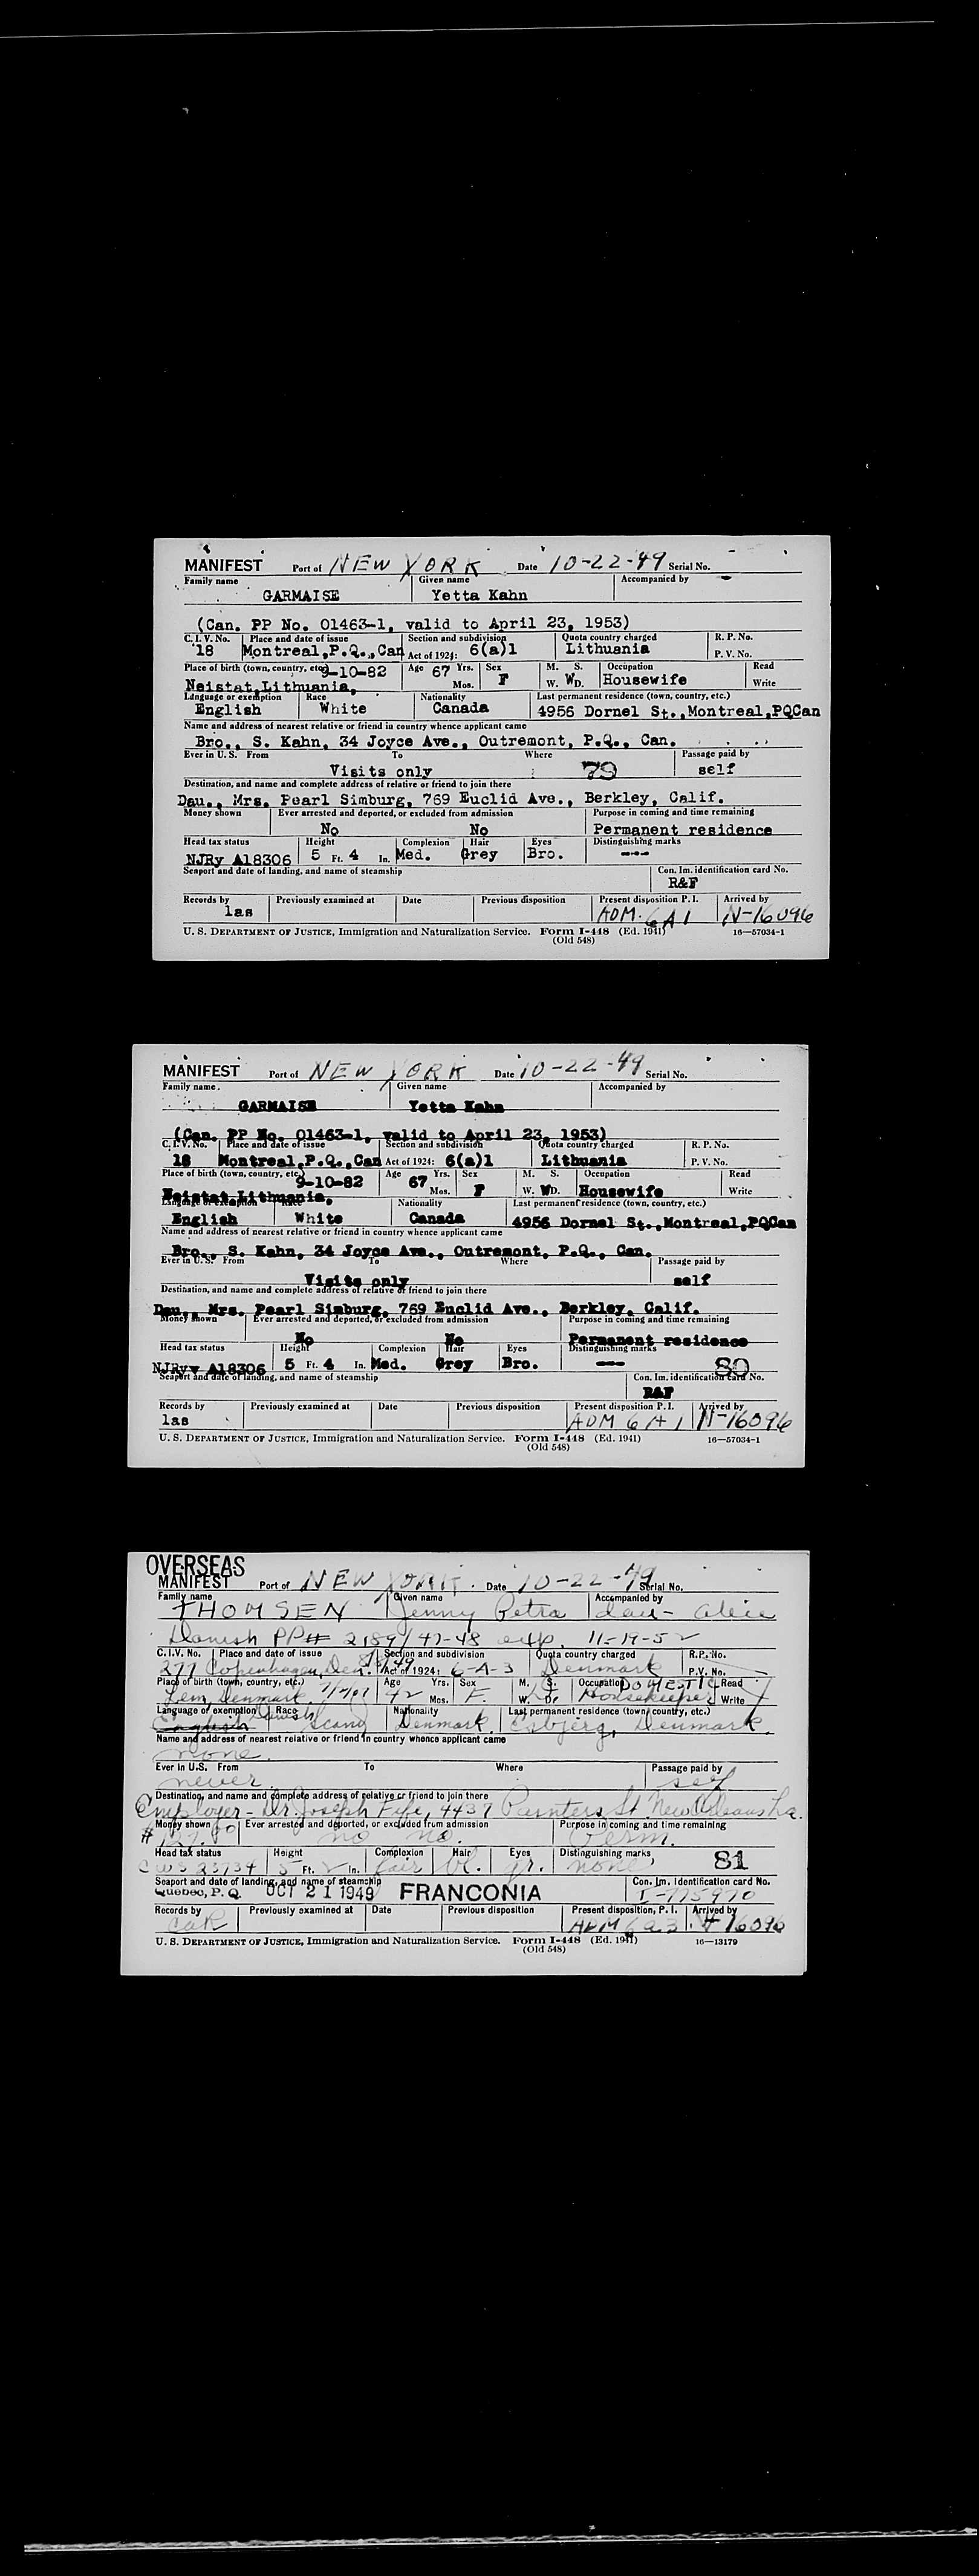 MANIFEST Port of NEW YORK Date 10-22-49 Serial No.
Family name Given name Accompanied by
GARMAISE Yetta Kahn
(Can. PP No. 01463-1, valid to April 23, 1953)
C. I. V. No. Place and date of issue Section and subdivision Quota country charged R. P. No.
18 Montreal,P.Q.,Can Act of 1924: 6(a)1 Lithuania P. V. No.
Place of birth (town, country, etc.) 9-10-82 Age 67 Yrs. Sex M. S. Occupation Read
Neistat,Lithuania, Mos. F W. WD. Housewife Write
Language or exemption Race Nationality Last permanent residence (town, country, etc.)
English White Canada 4956 Dornel St.,Montreal,PQCan
Name and address of nearest relative or friend in country whence applicant came
Bro., S. Kahn, 34 Joyce Ave., Outremont, P.Q., Can.
Ever in U. S. From To Where Passage paid by
Visits only 79 self
Destination, and name and complete address of relative or friend to join there
Dau., Mrs. Pearl Simburg, 769 Euclid Ave., Berkley, Calif.
Money shown Ever arrested and deported, or excluded from admission Purpose in coming and time remaining
No No Permanent residence
Head tax status Height Complexion Hair Eyes Distinguishing marks
NJRy A18306 5 Ft. 4 In. Med. Grey Bro. ---
Seaport and date of landing, and name of steamship Con. Im. identification card No.
R&F
Records by Previously examined at Date Previous disposition Present disposition P. I. Arrived by
las ADM. 6A1 N-16096
U. S. DEPARTMENT OF JUSTICE, Immigration and Naturalization Service. Form I-448 (Ed. 1941) 16—57034-1
(Old 548)
MANIFEST Port of NEW YORK Date 10-22-49 Serial No.
Family name Given name Accompanied by
GARMAISE Yetta Kahn
(Can. PP No. 01463-1, valid to April 23, 1953)
C. I. V. No. Place and date of issue Section and subdivision Quota country charged R. P. No.
18 Montreal,P.Q.,Can Act of 1924: 6(a)1 Lithuania P. V. No.
Place of birth (town, country, etc.) 9-10-82 Age 67 Yrs. Sex M. S. Occupation Read
Neistat,Lithuania, Mos. F W. WD. Housewife Write
Language or exemption Race Nationality Last permanent residence (town, country, etc.)
English White Canada 4956 Dornel St.,Montreal,PQCan
Name and address of nearest relative or friend in country whence applicant came
Bro., S. Kahn, 34 Joyce Ave., Outremont, P.Q., Can.
Ever in U. S. From To Where Passage paid by
Visits only self
Destination, and name and complete address of relative or friend to join there
Dau., Mrs. Pearl Simburg, 769 Euclid Ave., Berkley, Calif.
Money shown Ever arrested and deported, or excluded from admission Purpose in coming and time remaining
No No Permanent residence
Head tax status Height Complexion Hair Eyes Distinguishing marks
NJRy A18306 5 Ft. 4 In. Med. Grey Bro. --- 80
Seaport and date of landing, and name of steamship Con. Im. identification card No.
R&F
Records by Previously examined at Date Previous disposition Present disposition P. I. Arrived by
las ADM 6A1 N-16096
U. S. DEPARTMENT OF JUSTICE, Immigration and Naturalization Service. Form I-448 (Ed. 1941) 16—57034-1
(Old 548)
OVERSEAS
MANIFEST Port of NEW YORK Date 10-22-49 Serial No.
Family name Given name Accompanied by
THOMSEN Jenny Petra dau- Alice
Danish PP# 2189/47-48 exp. 11-19-52
C. I. V. No. Place and date of issue Section and subdivision Quota country charged R. P. No.
277 Copenhagen, Den. Act of 1924: 6-A-3 Denmark P. V. No.
Place of birth (town, country, etc.) Age Yrs. Sex M. S. Occupation DOMESTIC Read
Lem, Denmark 42 Mos. F. W. D. Housekeeper Write
Language or exemption Race Nationality Last permanent residence (town, country, etc.)
English Danish Scand Denmark Esbjerg, Denmark
Name and address of nearest relative or friend in country whence applicant came
none
Ever in U.S. From To Where Passage paid by
never self
Destination, and name and complete address of relative or friend to join there
Employer - Dr. Joseph Fife, 4437 Painters St New Orleans La.
Money shown Ever arrested and deported, or excluded from admission Purpose in coming and time remaining
no no. Perm.
Head tax status Height Complexion Hair Eyes Distinguishing marks 81
CWS 23734 5 Ft. 2 In. fair bl. gr. none
Seaport and date of landing, and name of steamship Con. Im. identification card No.
Quebec, P. Q. OCT 21 1949 FRANCONIA I-775970
Records by Previously examined at Date Previous disposition Present disposition, P. I. Arrived by
ADM 6a3 16096
U. S. DEPARTMENT OF JUSTICE, Immigration and Naturalization Service. Form I-448 (Ed. 1941) 16—13179
(Old 548)